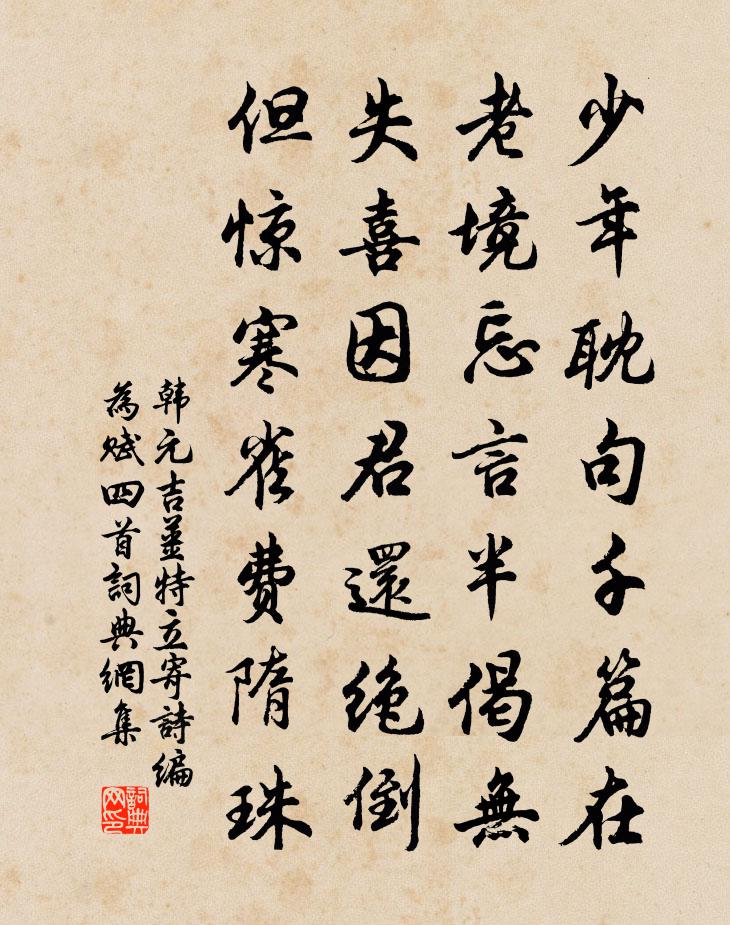 少年耽句千篇在
老境忘言半偈無
失喜因君還绝倒
但惊寒雀費隋珠
韩元吉薑特立寄詩编
為赋四首詞典網集
詞典网印